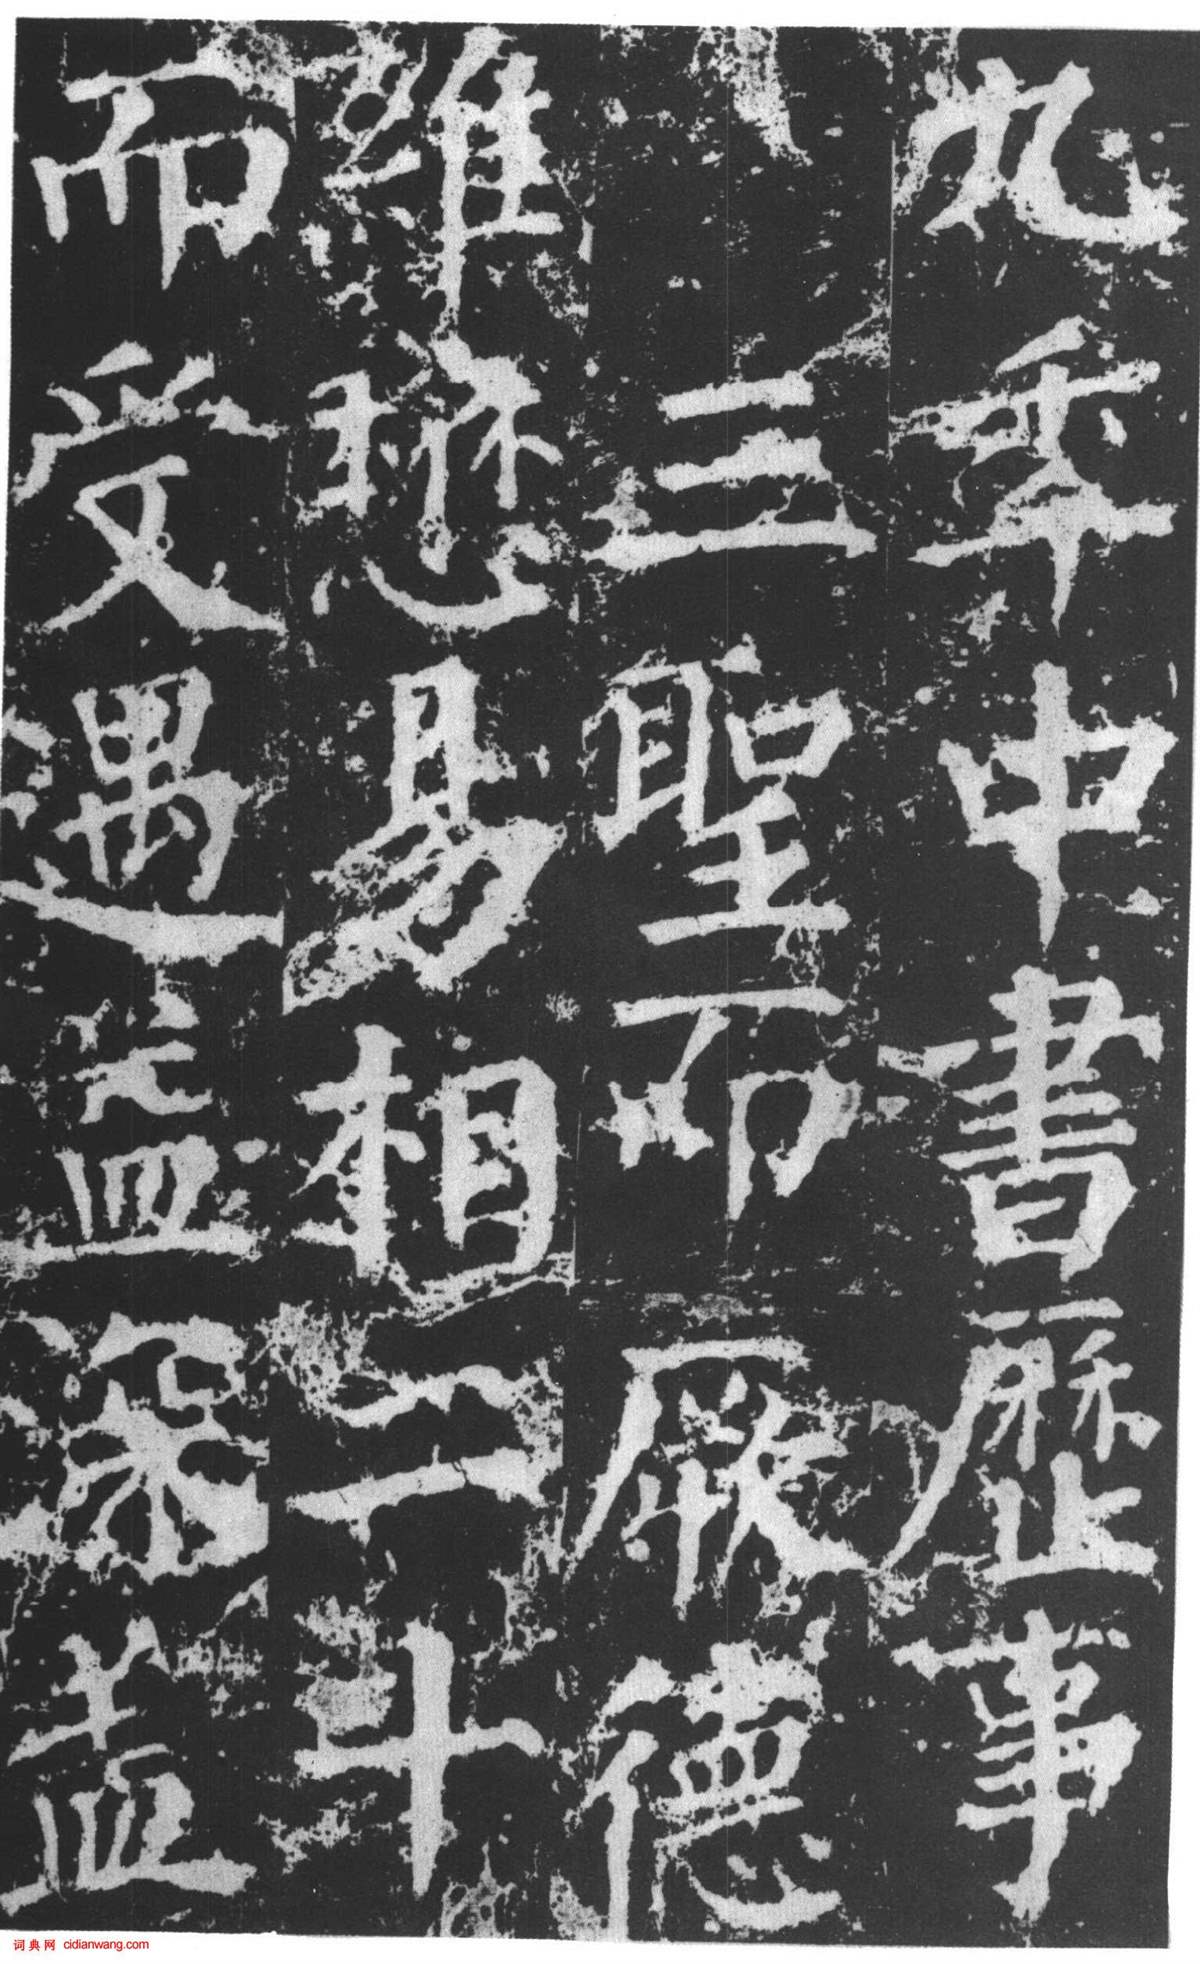 九秊中書歷事
三聖而厥德
維懋易相二十
而受遇益深盖
词典网 cidianwang.com